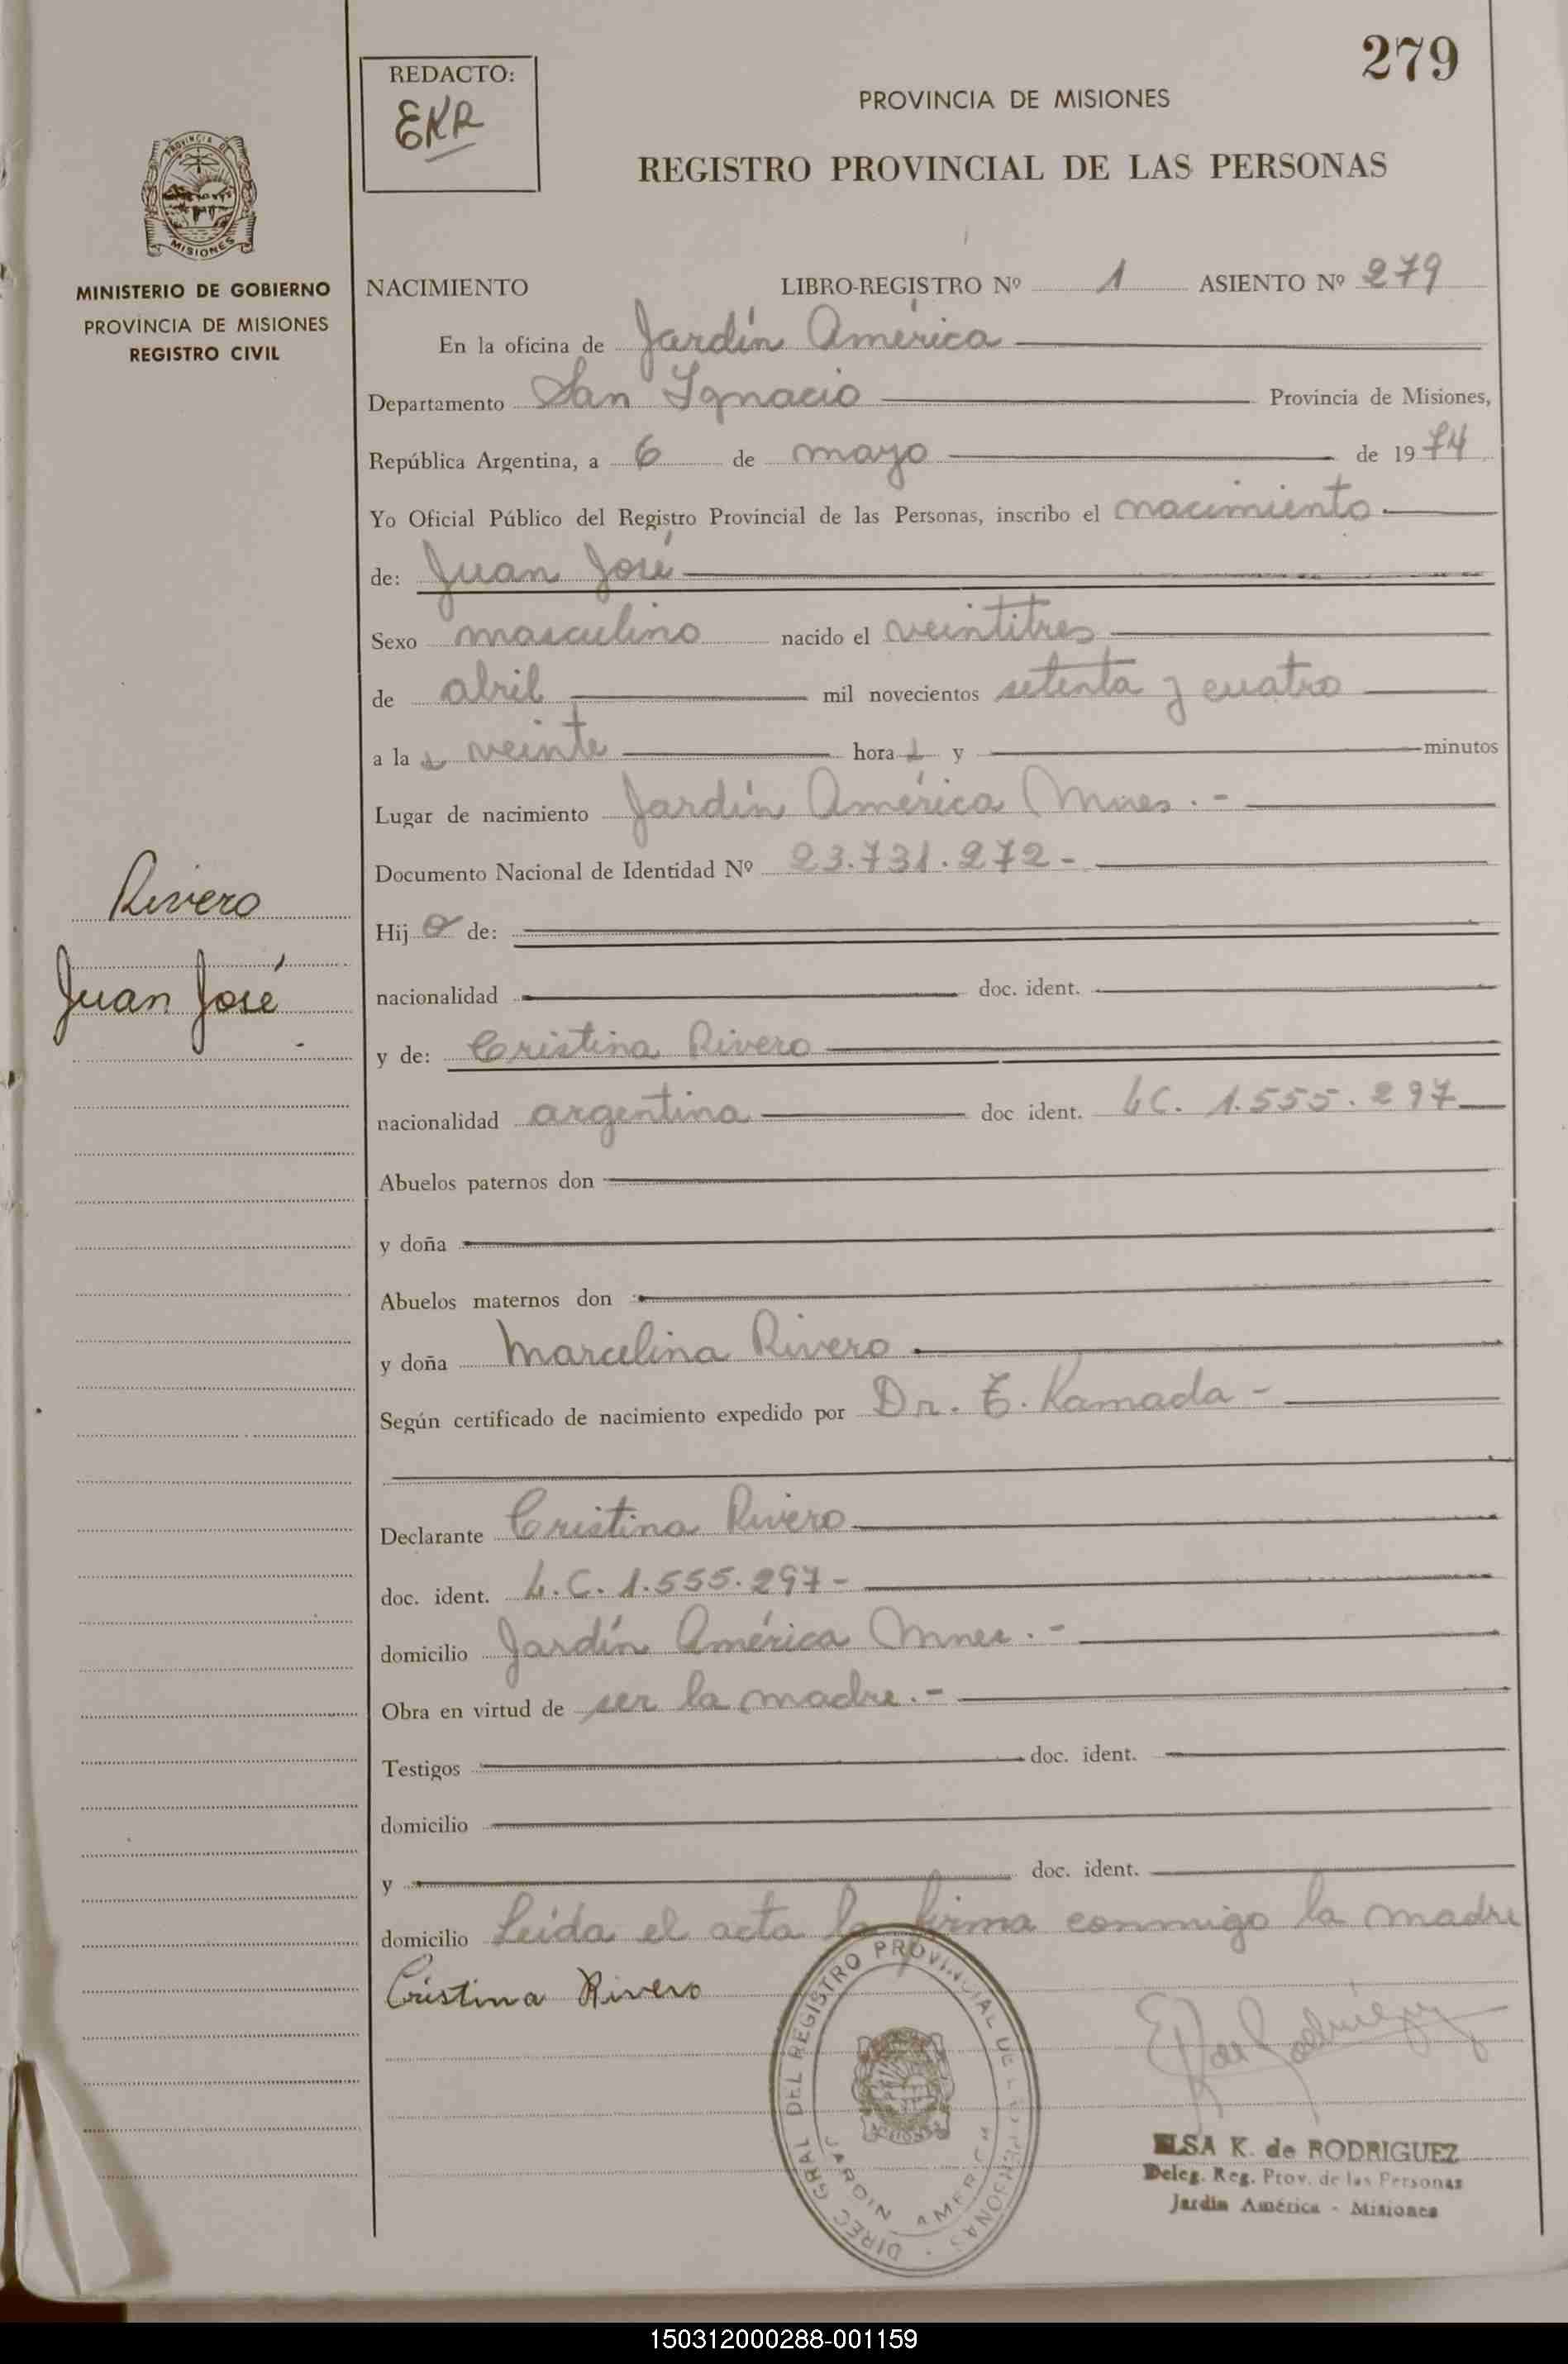 279
REDACTO:
EKR
PROVINCIA DE MISIONES
REGISTRO PROVINCIAL DE LAS PERSONAS
PROVINCIA DE
MISIONES
MINISTERIO DE GOBIERNO
PROVINCIA DE MISIONES
REGISTRO CIVIL
NACIMIENTO LIBRO-REGISTRO Nº 1 ASIENTO Nº 279
En la oficina de Jardín América
Departamento San Ignacio Provincia de Misiones,
República Argentina, a 6 de mayo de 1974
Yo Oficial Público del Registro Provincial de las Personas, inscribo el nacimiento
de: Juan José
Sexo masculino nacido el veintitres
de abril mil novecientos setenta y cuatro
a las veinte horas y minutos
Lugar de nacimiento Jardín América Mnes.-
Documento Nacional de Identidad Nº 23.731.272-
Rivero
Juan José
Hijo de:
nacionalidad doc. ident.
y de: Cristina Rivero
nacionalidad argentina doc ident. LC. 1.555.297
Abuelos paternos don
y doña
Abuelos maternos don
y doña Marcelina Rivero
Según certificado de nacimiento expedido por Dr. E. Kamada-
Declarante Cristina Rivero
doc. ident. L.C. 1.555.297-
domicilio Jardín América Mnes.-
Obra en virtud de ser la madre.-
Testigos doc. ident.
domicilio
y doc. ident.
domicilio Leída el acta la firma conmigo la madre
Cristina Rivero
DIREC GRAL DEL REGISTRO PROVINCIAL DE LAS PERSONAS
JARDIN AMERICA
ELSA K. de RODRIGUEZ
Deleg. Reg. Prov. de las Personas
Jardín América - Misiones
150312000288-001159